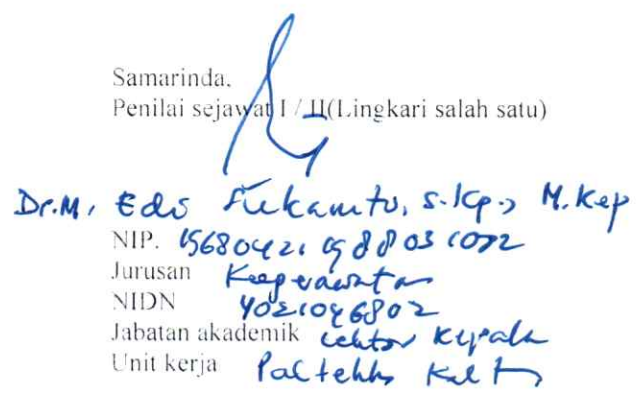 Samarinda,
Penilai sejawat I / II(Lingkari salah satu)
Dr.M. Edi Sukamto, S.Kp., M.Kep
NIP. 196804211988031002
Jurusan Keperawatan
NIDN 4021046802
Jabatan akademik Lektor Kepala
Unit kerja Poltekkes